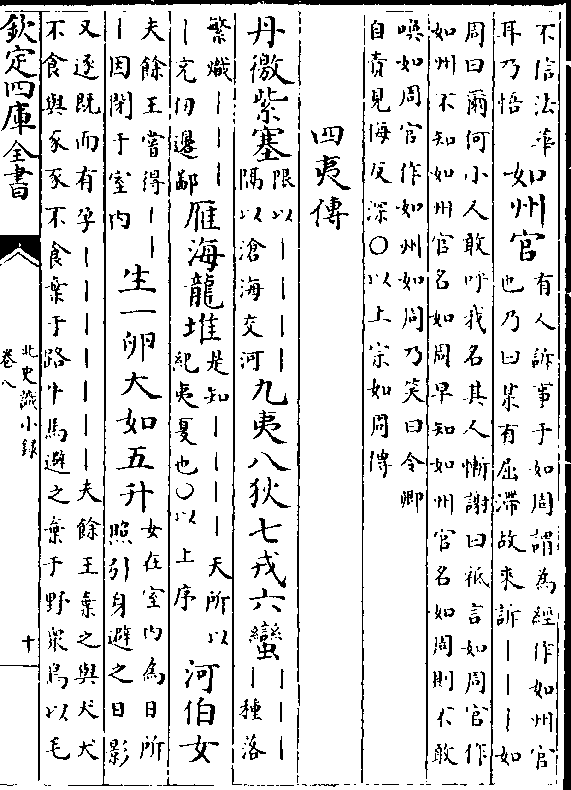 不信法華
耳乃悟
如州官
有人訴事于如周謂為經作如州官
也乃曰某有屈滯故來訴｜｜｜如
周曰爾何小人敢呼我名其人慚謝曰祗言如周官作
如州不知如州官名如周早知如州官名如周則不敢
喚如周官作如州如周乃笑曰令卿
自責見侮反深〇以上宗如周傳
四夷傳
丹徼紫塞
限以｜｜｜｜
隅以滄海交河
九夷八狄七戎六蠻
｜｜｜｜
｜種落
繁熾｜｜｜
｜充仞邊鄙
雁海龍堆
是知｜｜｜｜天所以
紀夷夏也〇以上序
河伯女
夫餘王嘗得｜｜
｜因閉于室内
生一卵大如五升
女在室内為日所
照引身避之日影
又逐既而有孕｜｜｜｜｜｜｜夫餘王棄之與犬犬
不食與豕豕不食棄于路牛馬避之棄于野衆鳥以毛
欽定四庫全書
北史識小録
卷八
十